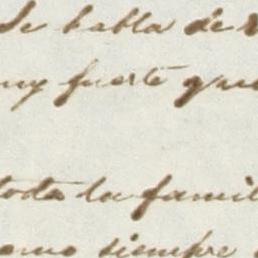 Se habla de
muy fuerte que
toda la famil
como siempre